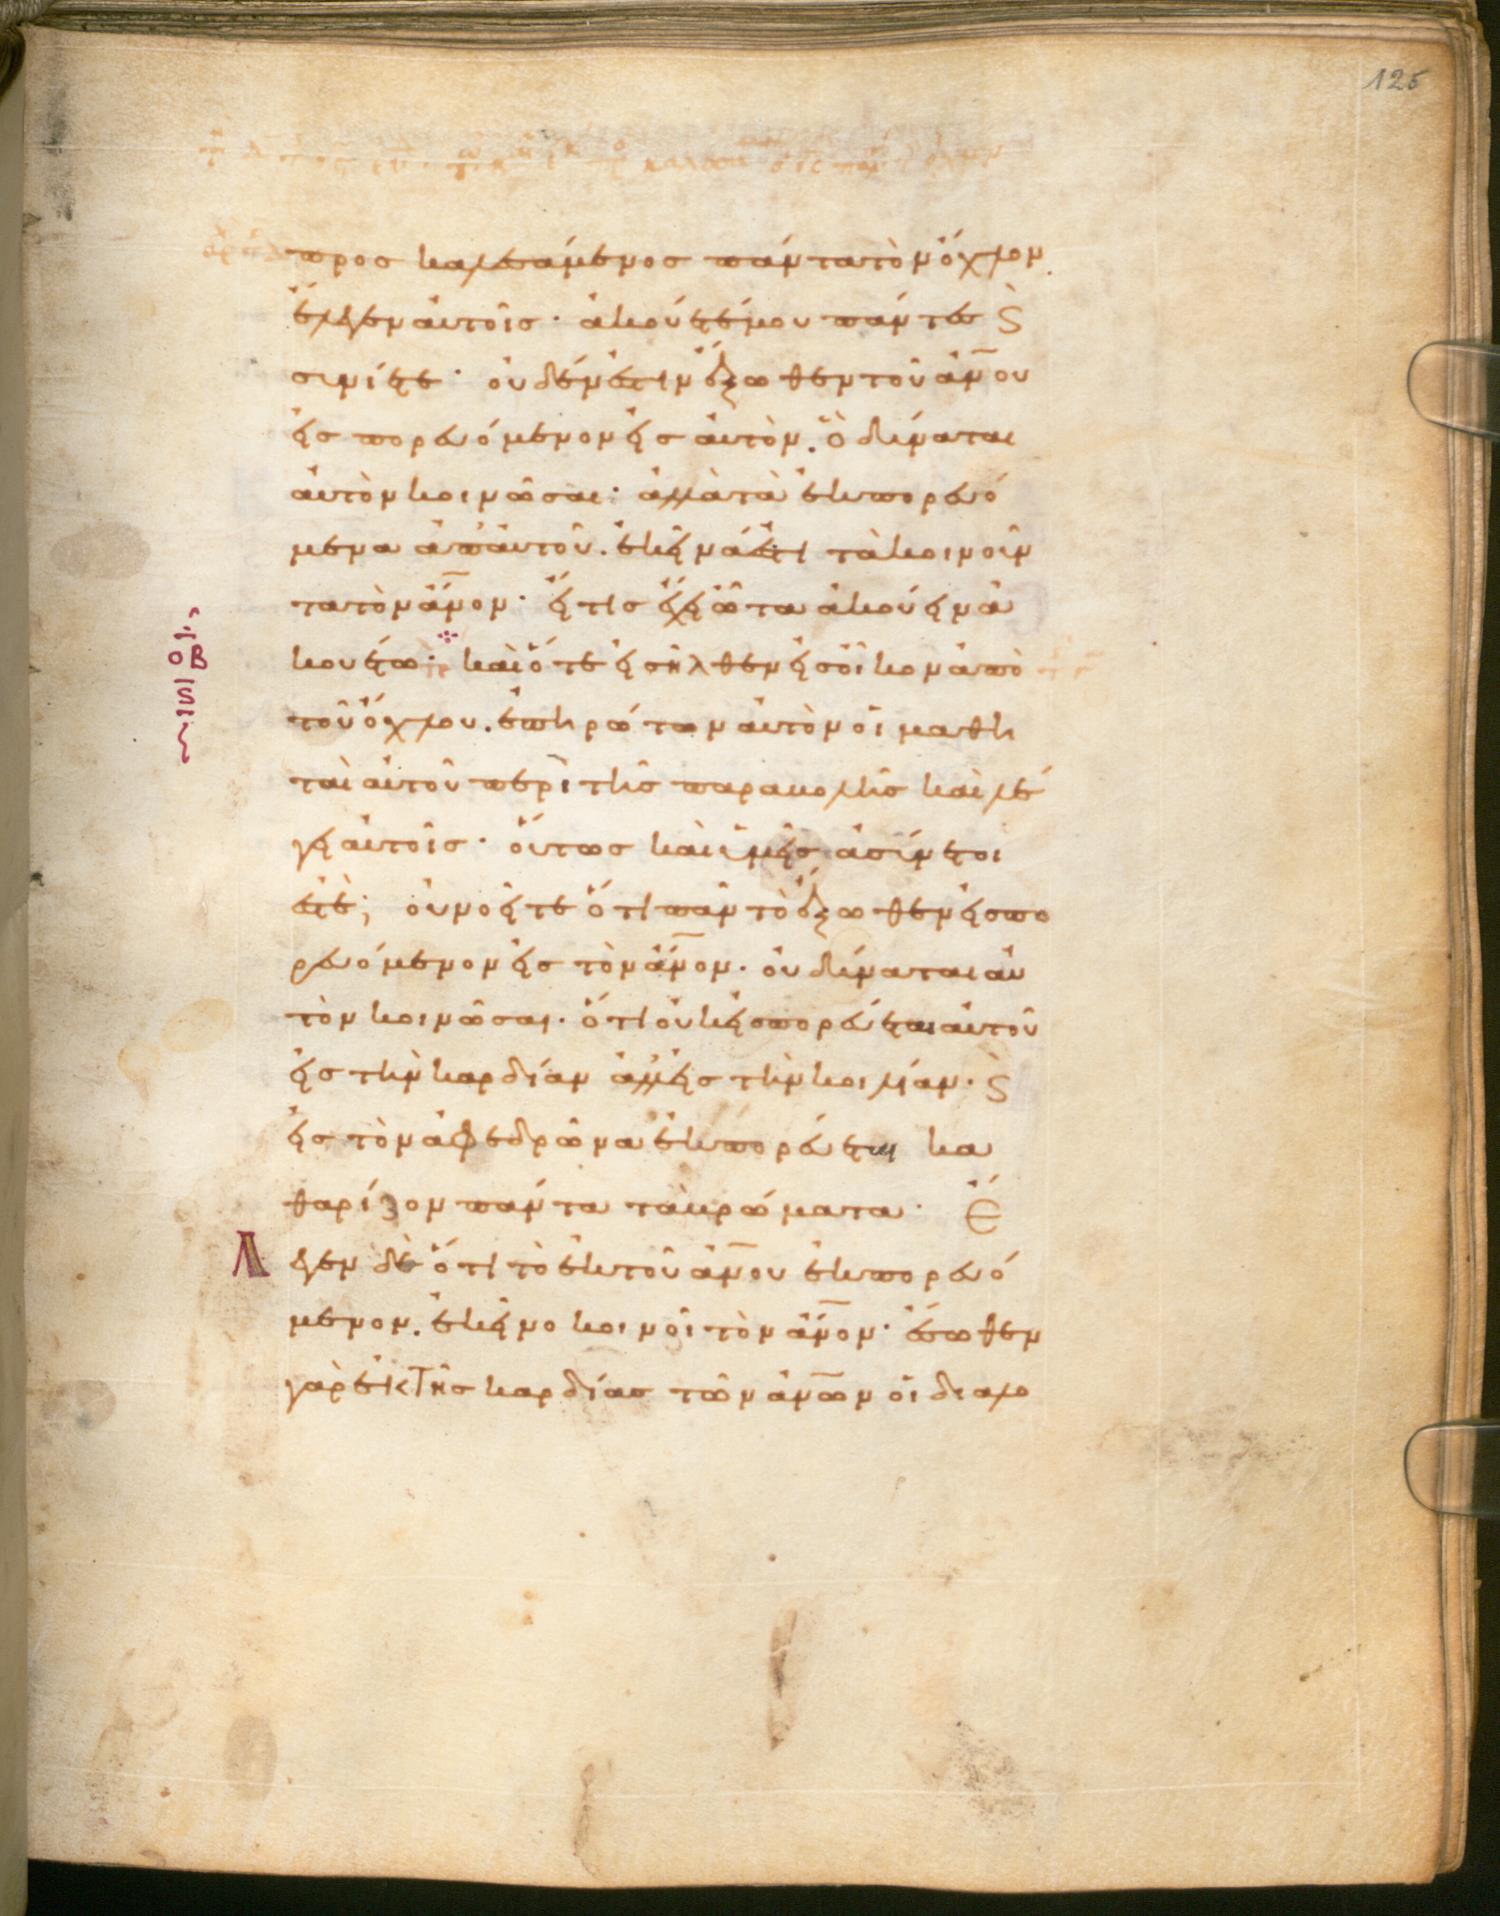 125
προσ καλεσάμενοσ πάντα τὸν ὄχλον.
ἔλεγεν ἀυτοῖσ· ἀκούετέ μου πάντεσ ϛ̀
συνίετε· ὀυδέν ἐστιν ἔξωθεν τοῦ ἀν̅ου
ἐισπορευόμενον ἐισ ἀυτὸν. ὃ δύναται
ἀυτὸν κοινῶσαι· ἀλλὰ τὰ ἐκπορευό
μενα ἀπ᾽ ἀυτοῦ. ἐκεῖνά ἐστι τὰ κοινοῦν
τα τὸν ἄν̅ον· ἔι τισ ἔχει ὦτα ἀκούειν ἀ
κουέτω· καὶ ὅτε ἐισῆλθεν ἐισ ὄικον ἀπὸ
τοῦ ὄχλου. ἐπηρώτων ἀυτὸν ὁι μαθη
ταὶ ἀυτοῦ περὶ τῆσ παραβολῆσ καὶ λέ
γει ἀυτοῖσ· ὅυτωσ καὶ ὑμεῖσ ἀσύνετοι
ἐστέ; ὀυ νοεῖτε ὅτι πᾶν τὸ ἔξωθεν ἐισπο
ρευόμενον ἐισ τὸν ἄν̅ον· ὀυ δύναται ἀυ
τὸν κοινῶσαι· ὅτι ὀυκ ἐισπορεύεται ἀυτοῦ
ἐισ τὴν καρδίαν ἀλλ᾽ ἐισ τὴν κοιλίαν· ϛ̀
ἐισ τὸν ἀφεδρῶνα ἐκπορεύεται κα
θαρίζον πάντα τὰ βρώματα· Ἔ
Λ εγεν δὲ ὅτι τὸ ἐκ τοῦ ἀν̅ου ἐκπορευό
μενον. ἐκεῖνο κοινοῖ τὸν ἄν̅ον· ἔσωθεν
γὰρ ἐκ τῆσ καρδίασ τῶν ἀν̅ων ὁι διαλο